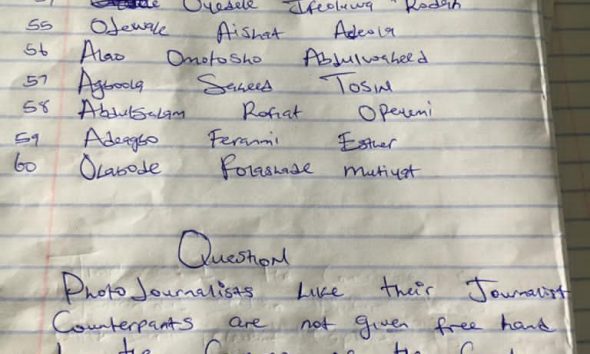 Oyedele Ifeoluwa
55 Odewale Aishat Adeola
56 Alao Omotosho Abdulwasheed
57 Agboola Saheed Tosin
58 Abdulsalam Rofiat Opeyemi
59 Adeagbo Feranmi Esther
60 Olabode Folashade Mutiyat
Question
Photo Journalists Like their Journalist
Counterparts are not given free hand
the